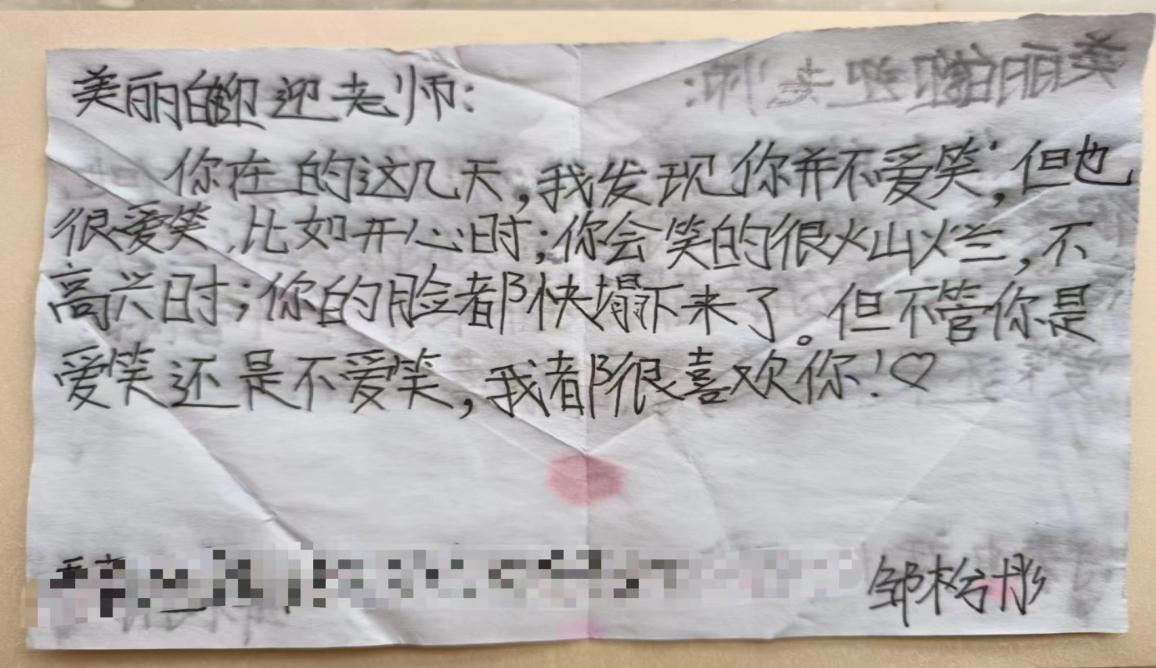 美丽的迎老师:
你在的这几天,我发现你并不爱笑,但也
很爱笑,比如开心时;你会笑的很灿烂,不
高兴时;你的脸都快塌下来了。但不管你是
爱笑还是不爱笑,我都很喜欢你!♡
邹彬彤